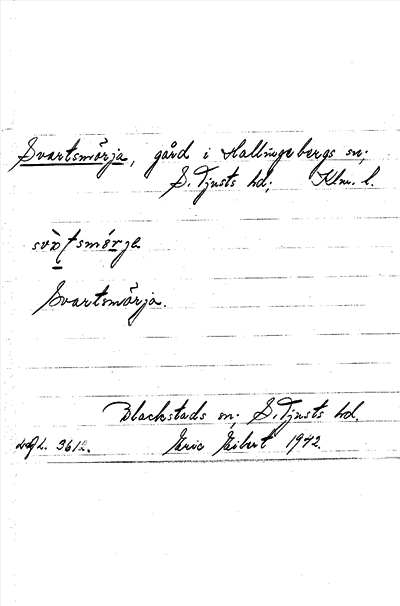 Svartsmörja, gård i Hallingebergs sn;
S. Tjusts hd; Klm. l.
Svartsmörja.
Blackstads sn; S. Tjusts hd.
3612. Eric Eibert 1942.